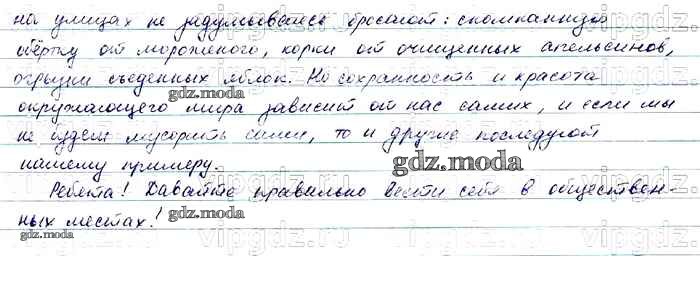 на улицах не задумываваясь бросают: скомканную
обёртку от мороженого, корки от очищенных апельсинов,
огрызки съеденных яблок. Но сохранность и красота
gdz.moda
окружающего мира зависит от нас самих, и если мы
не будем мусорить сами, то и другие последуют
нашему примеру.
gdz.moda
Ребята! Давайте правильно вести себя в обществен-
ных местах!
gdz.moda
gdz.moda
vipgdz.ru